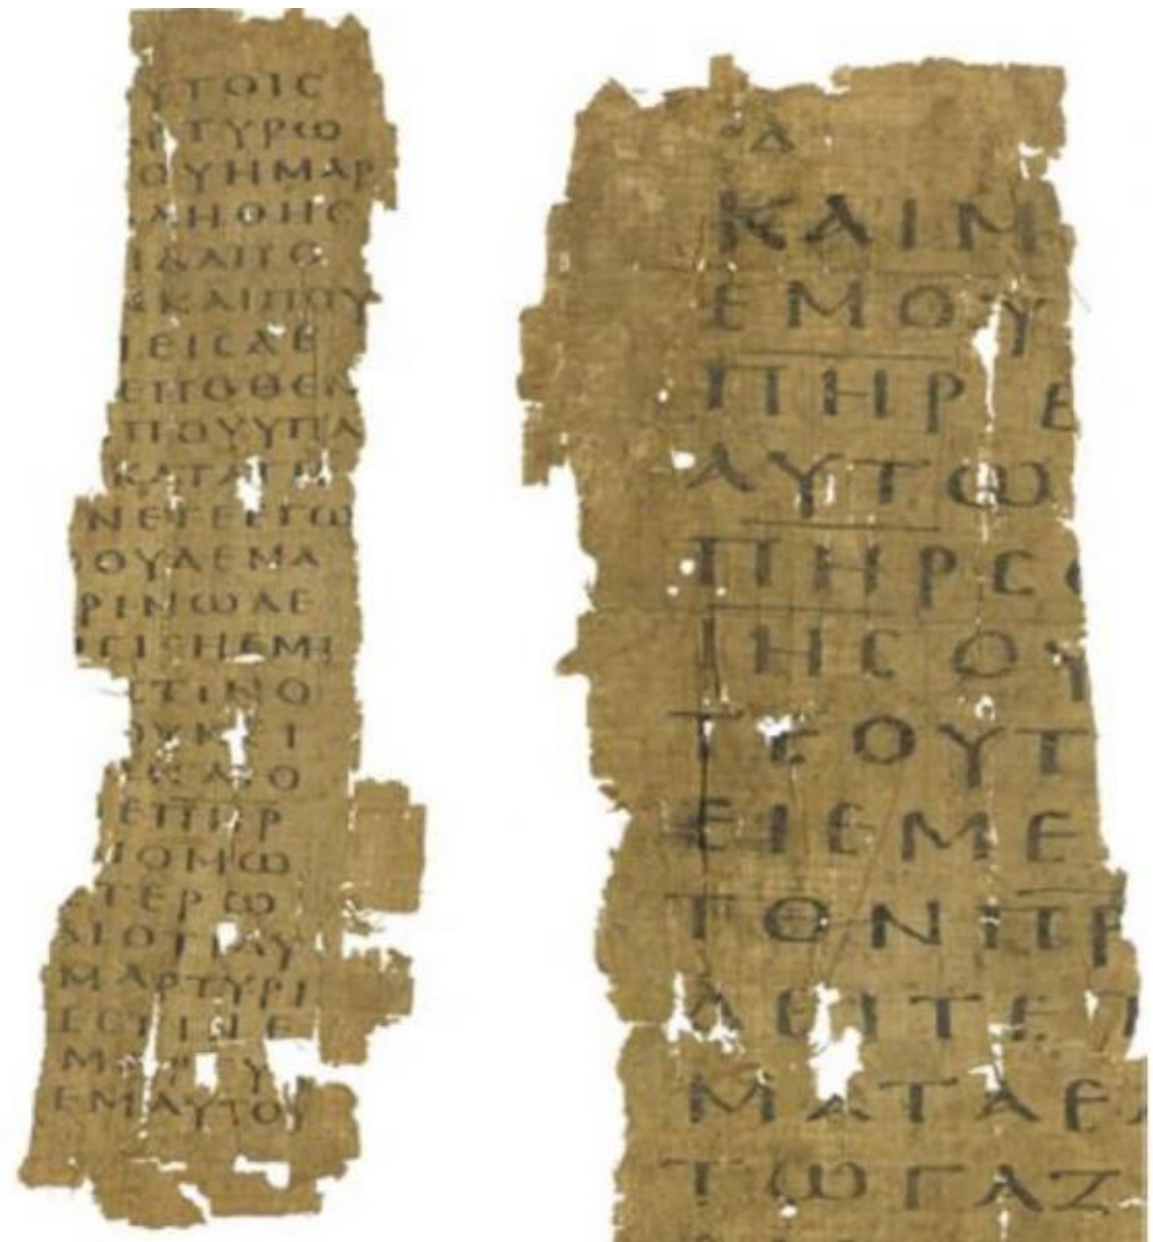 ΥΤΟΙϹ
ΡΤΥΡΩ
ΟΥΗΜΑΡ
ΛΗΘΗϹ
ΙΔΑΠΟ
ΚΑΙΠΟΥ
ΙΕΙϹΔΕ
ΕΠΟΘΕΝ
ΠΟΥΥΠΑ
ΚΑΤΑΤΗ
ΝΕΤΕΕΓΩ
ΟΥΔΕΝΑ
ΡΙΝΩΔΕ
ΙϹΙϹΗΕΜΗ
ϹΤΙΝΟ
ΟΥΚΕΙ
ΚΑΙΟ
ΕΠΗΡ
ΝΟΜΩ
ΤΕΡΩ
ΔΥΟΓΑΥ
ΜΑΡΤΥΡΙ
ΕϹΤΙΝΕ
ΜΑΡΤΥ
ΕΜΑΥΤΟΥ
ΟΔ
ΚΑΙΜ
ΕΜΟΥ
ΠΗΡ Ε
ΑΥΤΩ
ΠΗΡϹΟ
ΙΗϹΟΥ
ΤΕΟΥΤ
ΕΙΕΜΕ
ΤΟΝΠΡ
ΔΕΙΤΕΤ
ΜΑΤΑΕΛ
ΤΩΓΑΖ